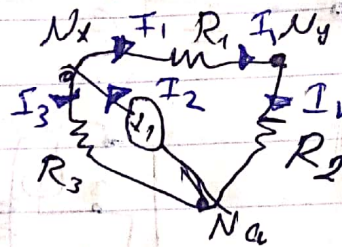 Nx I₁ R₁ I₁ Ny
I₃ I₂ I₁
R₃ R₂
Na